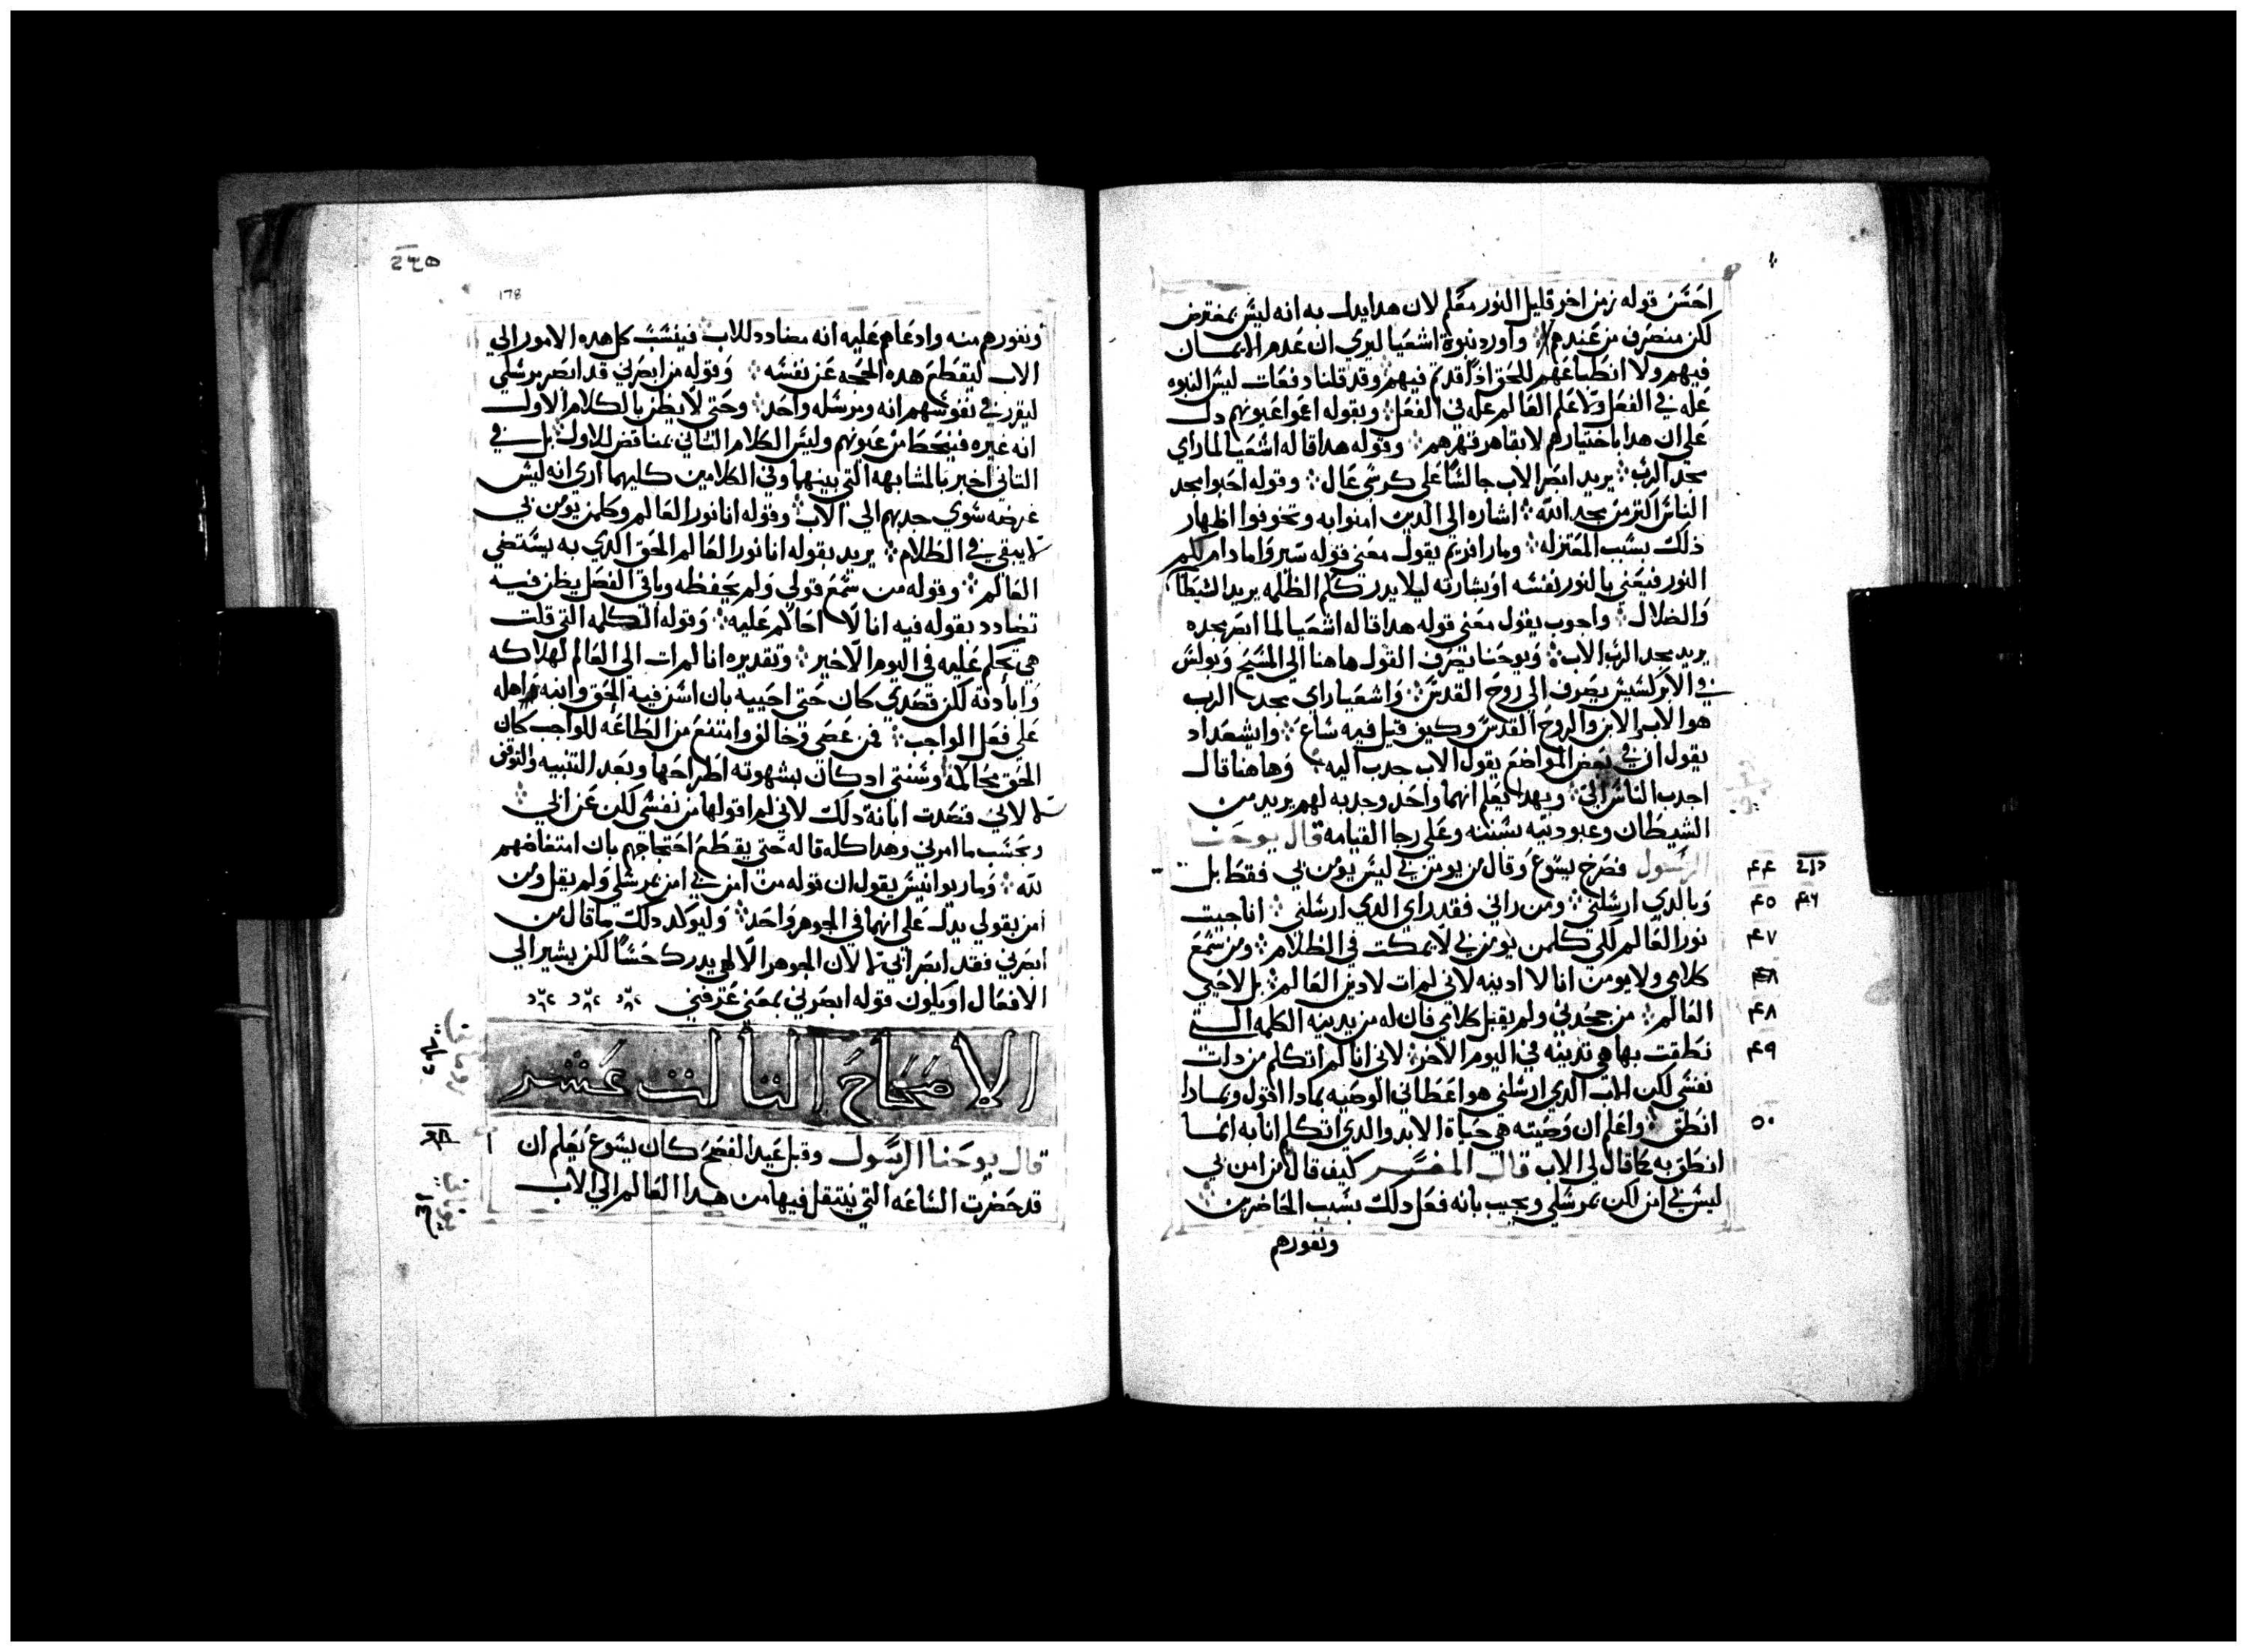 احسن قوله زمن اخر قليل النور معكم لان هدا يدل به انه ليس بمغترض
لكن منصرف من عندهم واورد نبوة اشعيا ليري ان عدم الايمان
فيهم ولا انطباعهم للحق اذا قدم فيهم وقد قلنا دفعات ليس النبوه
عله في الفعل ولا علم العالم عله في الفعل وبقوله اعموا عيونهم دل
علي ان هدا باختيارهم لا بقاهر قهرهم وقوله هدا قاله اشعيا لما راي
مجد الرب يريد ابصر الاب جالسًا علي كرسي عال وقوله احبوا مجد
الناس اكتر من مجد الله اشاره الي الدين امنوا به وتخوفوا اظهار
ذلك بسبب المعتزله ومار افريم يقول معني قوله سيروا ما دام لكم
النور فيعني بالنور نفسه او بشارته ليلا يدرككم الظلمه يريد الشيطان
والضلال واحوب يقول معني قوله هدا قاله اشعيا لما ابصر مجده
يريد مجد الرب الاب ويوحنا يصرف القول هاهنا الي المسيح وبولس
في الابركسيس يصرف الي روح القدس واشعيا راي مجد الرب
هو الاب والابن والروح القدس وكيف قيل فيه شاع وايشعداد
يقول ان في بعض المواضع يقول الاب جدب اليه وهاهنا قال
اجدب الناس الي وبهدا يعلم انهما واحد وجدبه لهم يريد من
الشيطان وعبوديته بسننه وعلي رجا القيامة قال يوحنا
الرسول فصرخ يسوع وقال من يومن بي ليس يومن بي فقط بل ٤٤
وبالدي ارسلني ومن راني فقد راي الدي ارسلني انا جيت ٤٥ ٤٦
نور العالم لكي كلمن يومن بي لا يمكت في الظلام ومن سمع ٤٧
كلامي ولا يومن انا لا ادينه لاني لم ات لادين العالم بل لاحيي
العالم من جحدني ولم يقبل كلامي فان له من يدينه الكلمه التي ٤٨
نطقت بها هي تدينه في اليوم الاخر لاني انا لم اتكلم من دات ٤٩
نفسي لكن الاب الدي ارسلني هو اعطاني الوصيه بمادا اقول وبمادا
انطق واعلم ان وصيته هي حياة الابد والدي اتكلم انا به انما ٥٠
انطق به كما قال لي الاب قال المفسر كيف قال من امن بي
ليس بي امن لكن بمرسلي ويجيب بانه فعل دلك بسبب الحاضرين
ونفورهم
178
ونفورهم منه وادعاهم عليه انه مضادد للاب فينسب كل هده الامور الي
الاب ليقطع هده الحجه عن نفسه وقوله من ابصرني قد ابصر مرسلي
ليقرر في نفوسهم انه ومرسله واحد وحتي لا يظن بالكلام الاول
انه غيره فينحط من عيونهم وليس الكلام التاني بمناقض للاول بل في
التاني اخبر بالمشابهه التي بينهما وفي الكلامين كليهما اري انه ليس
غرضه سوي جدبهم الي الاب وقوله انا نور العالم وكلمن يومن بي
لا يبقي في الظلام يريد بقوله انا نور العالم الحق الدي به يستضي
العالم وقوله من سمع قولي ولم يحفظه وباقي الفصل يظن فيه
تضادد بقوله فيه انا لا احاكم عليه وقوله الكلمه التي قلت
هي تحكم عليه في اليوم الاخير وتقديره انا لم ات الي العالم لهلاكه
وابادته لكن قصدي كان حتي احييه بان اسن فيه الحق وانبه اهله
علي فعل الواجب فمن عصي وخالف وامتنع من الطاعه للواجب كان
الحق محاكمه وسنتي اد كان بشهوته اطراحها وبعد التنبيه والتوقف
لاني قصدت ابانة دلك لاني لم اقولها من نفسي لكن عن ابي
وبحسب ما امرني وهدا كله قاله حتي يقطع احتجاجهم بان امتعاضهم
لله ومار يوانيس يقول ان قوله من امن بي امن بمرسلي ولم يقل ومن
امن بقولي يدل علي انهما في الجوهر واحد وليوكد دلك ما قال من
ابصرني فقد ابصر ابي لا لان الجوهر الالهي يدرك حسًا لكن يشير الي
الافعال او يكون قوله ابصرني بمعني عرفني
الاصحاح التالت عشر
قال يوحنا الرسول وقبل عيد الفصح كان يسوع يعلم ان
قد حضرت الساعه التي ينتقل فيها من هدا العالم الي الاب